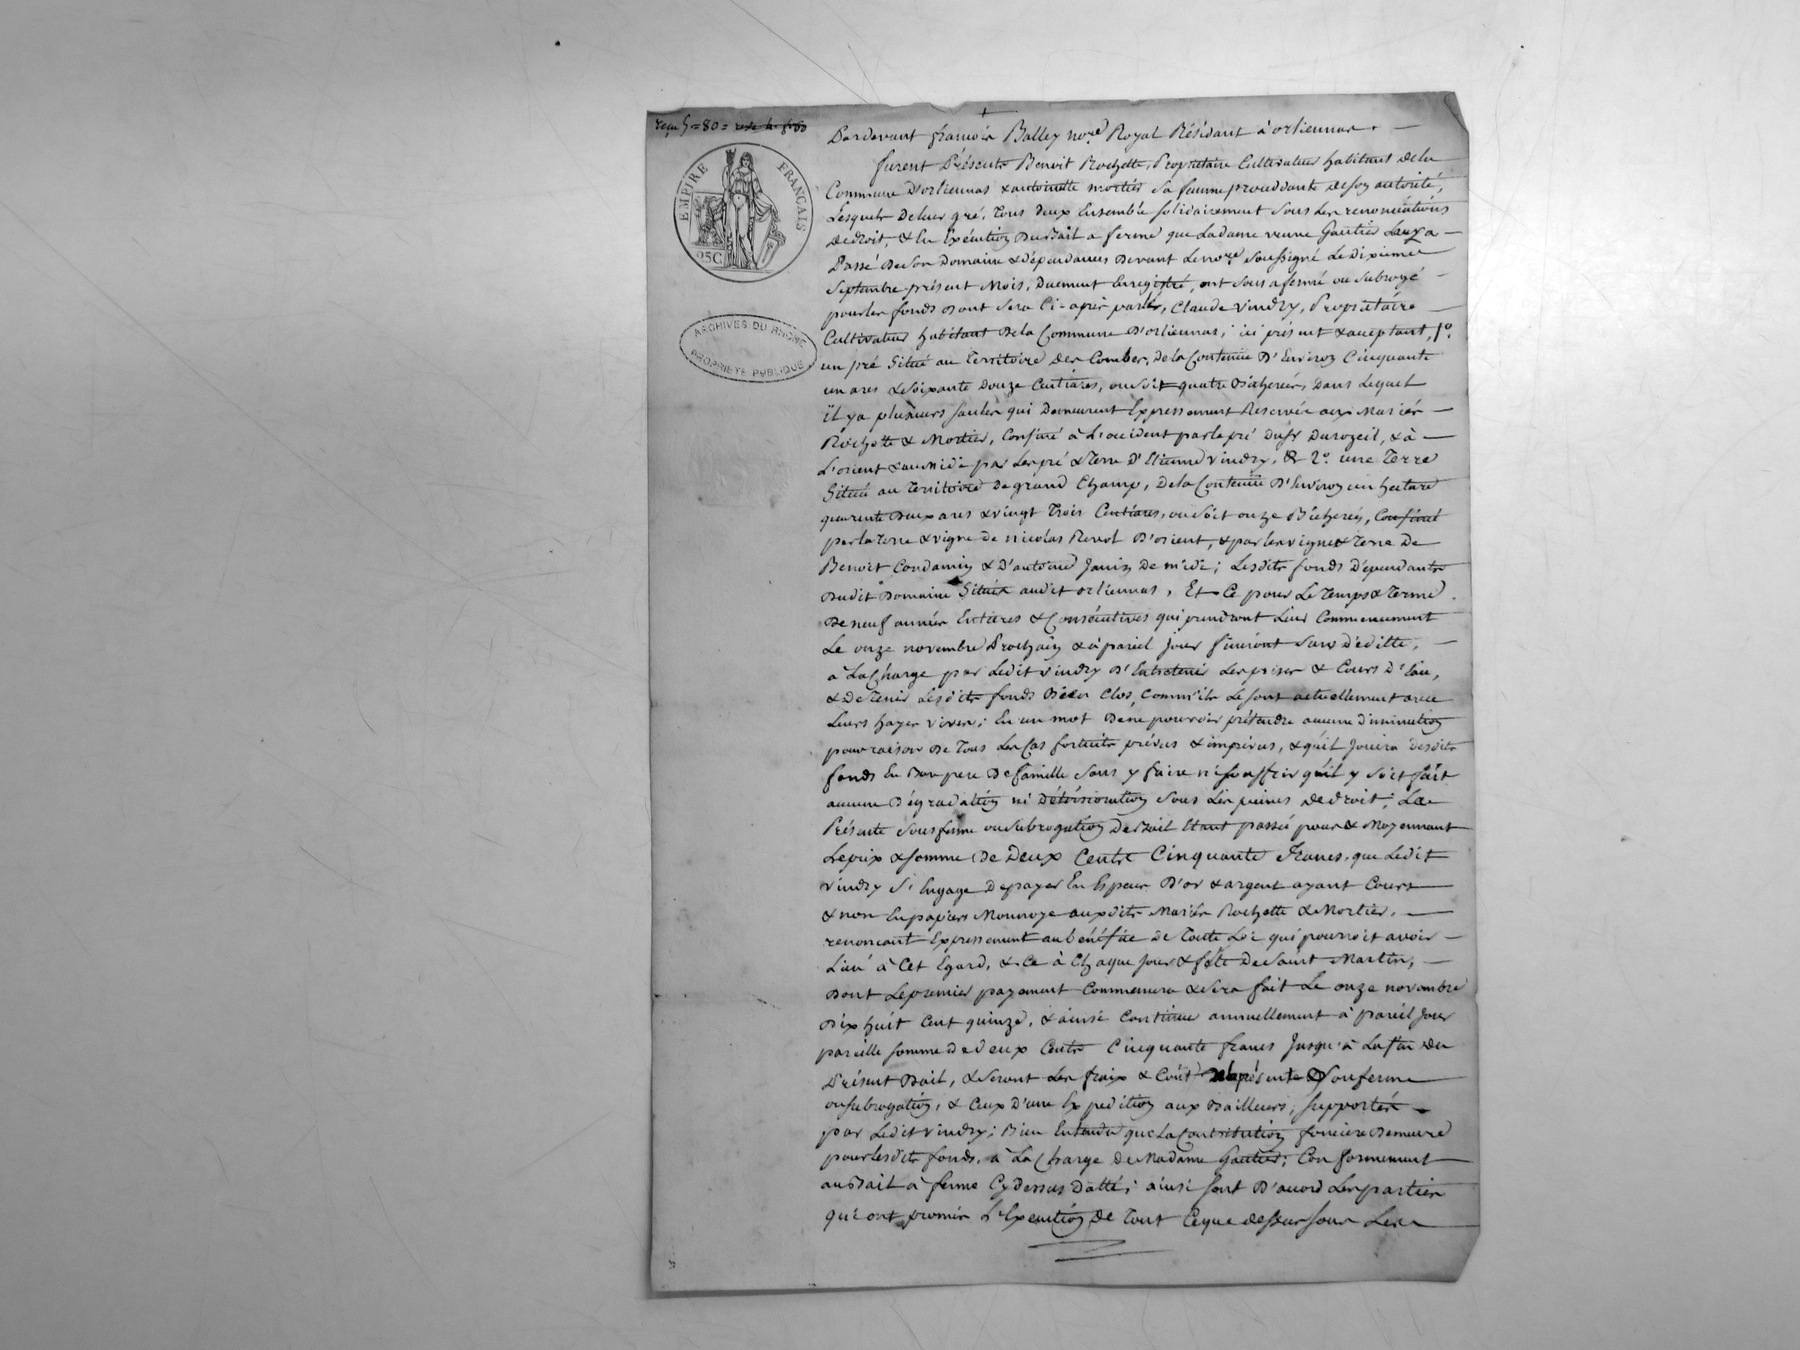 reçu 5=80=
EMPIRE FRANÇAIS
25C
ARCHIVES DU RHONE
PROPRIETE PUBLIQUE
Pardevant françois Balley no.re Royal Résidant à orlienas.
furent Présents Benoit Rochette, Propriétaire Cultivateur habitant dela
Commune D'orlienas & antoinette mortier sa femme procédante deson autorité,
Lesquels deleur gré, tous deux Ensemble solidairement sous Les renonciations
dedroit, & En Exécution Du Bail a ferme que La dame veuve Gautier a
Passé De son Domaine & dépendances Devant Le no.re soussigné Le Dixieme
Septembre présent Mois, Duement Enregistré, ont sous afermé ou subrogé
pour les fonds Dont sera Ci-après parlé, Claude vindry, Propriétaire
Cultivateur habitant De la Commune D'orlienas, ici présent & acceptant, 1.º
un pré Situé au Territoire Des Combes, de la Contenue D'Environ Cinquante
un ares & soixante Douze Centiares, ou soit quatre Bicherées, Dans Lequel
il y a plusieurs saules qui Demeurent Expressement Reservés aux Mariés
Rochette & Mortier, Confiné à L'occident par le pré du Sr Durozeil, & à
L'orient & au midi par Les pré & Terre D'Etienne vindry, & 2.º une Terre
Située au Territoire De grand Champ, De la Contenue D'Environ un hectare
quarente Deux ares & vingt Trois Centiares, ou soit onze Bicherées, Confiné
par la terre & vigne de nicolas Revol D'orient, & par les vigne & Terre De
Benoit Condamin & D'antoine Janin De midi; Lesdits fonds Dépendants
Dudit Domaine Situés audit orlienas, Et Ce pour Le Temps & Terme
De neuf années Entieres & Consécutives qui prendront Leur Commencement
Le onze novembre Prochain & à pareil Jour finiront sans Déditte,
à La Charge par Ledit vindry D'Entretenir Les prises & Cours D'Eau,
& De Tenir Lesdits fonds Bien Clos, Comm'ils Le sont actuellement avec
Leurs hayes vives; En un mot De ne pouvoir prétendre aucune diminution
pour raison De Tous Les Cas fortuits prévus & imprévus, & qu'il Jouira desdits
fonds En Bon pere De famille sans y faire ni souffrir qu'il y soit fait
aucune Dégradation ni Détérioration sous Les peines de droit; La
Présente sousferme ou subrogation De Bail Etant passée pour & Moyennant
Le prix & somme De Deux Cents Cinquante Francs, que Ledit
vindry s'Engage De payer En Especes D'or & argent ayant Cours
& non En papiers Monnoye auxdits Mariés Rochette & Mortier,
renoncant Expressement au bénéfice de Toute Loi qui pourroit avoir
Lieu à Cet Egard, & Ce à Chaque Jour & fête De Saint Martin,
Dont Le premier payement Commencera & sera fait Le onze novembre
Dix huit Cent quinze, & ainsi Continuer annuellement à pareil Jour
pareille somme De Deux Cents Cinquante francs Jusqu'à La fin Du
Présent Bail, & seront Les fraix & Coût présente sousferme
ou subrogation, & Ceux D'une Expedition aux Bailleurs, supportés
par Ledit vindry; Bien Entendu que La Contribution fonciere Demeure
pour lesdits fonds, à La Charge De Madame Gautier; Conformement
au Bail à ferme Cy Dessus Datté; ainsi sont D'accord Les parties
qui ont promis L'Exécution De Tout Ce que dessus sous Les